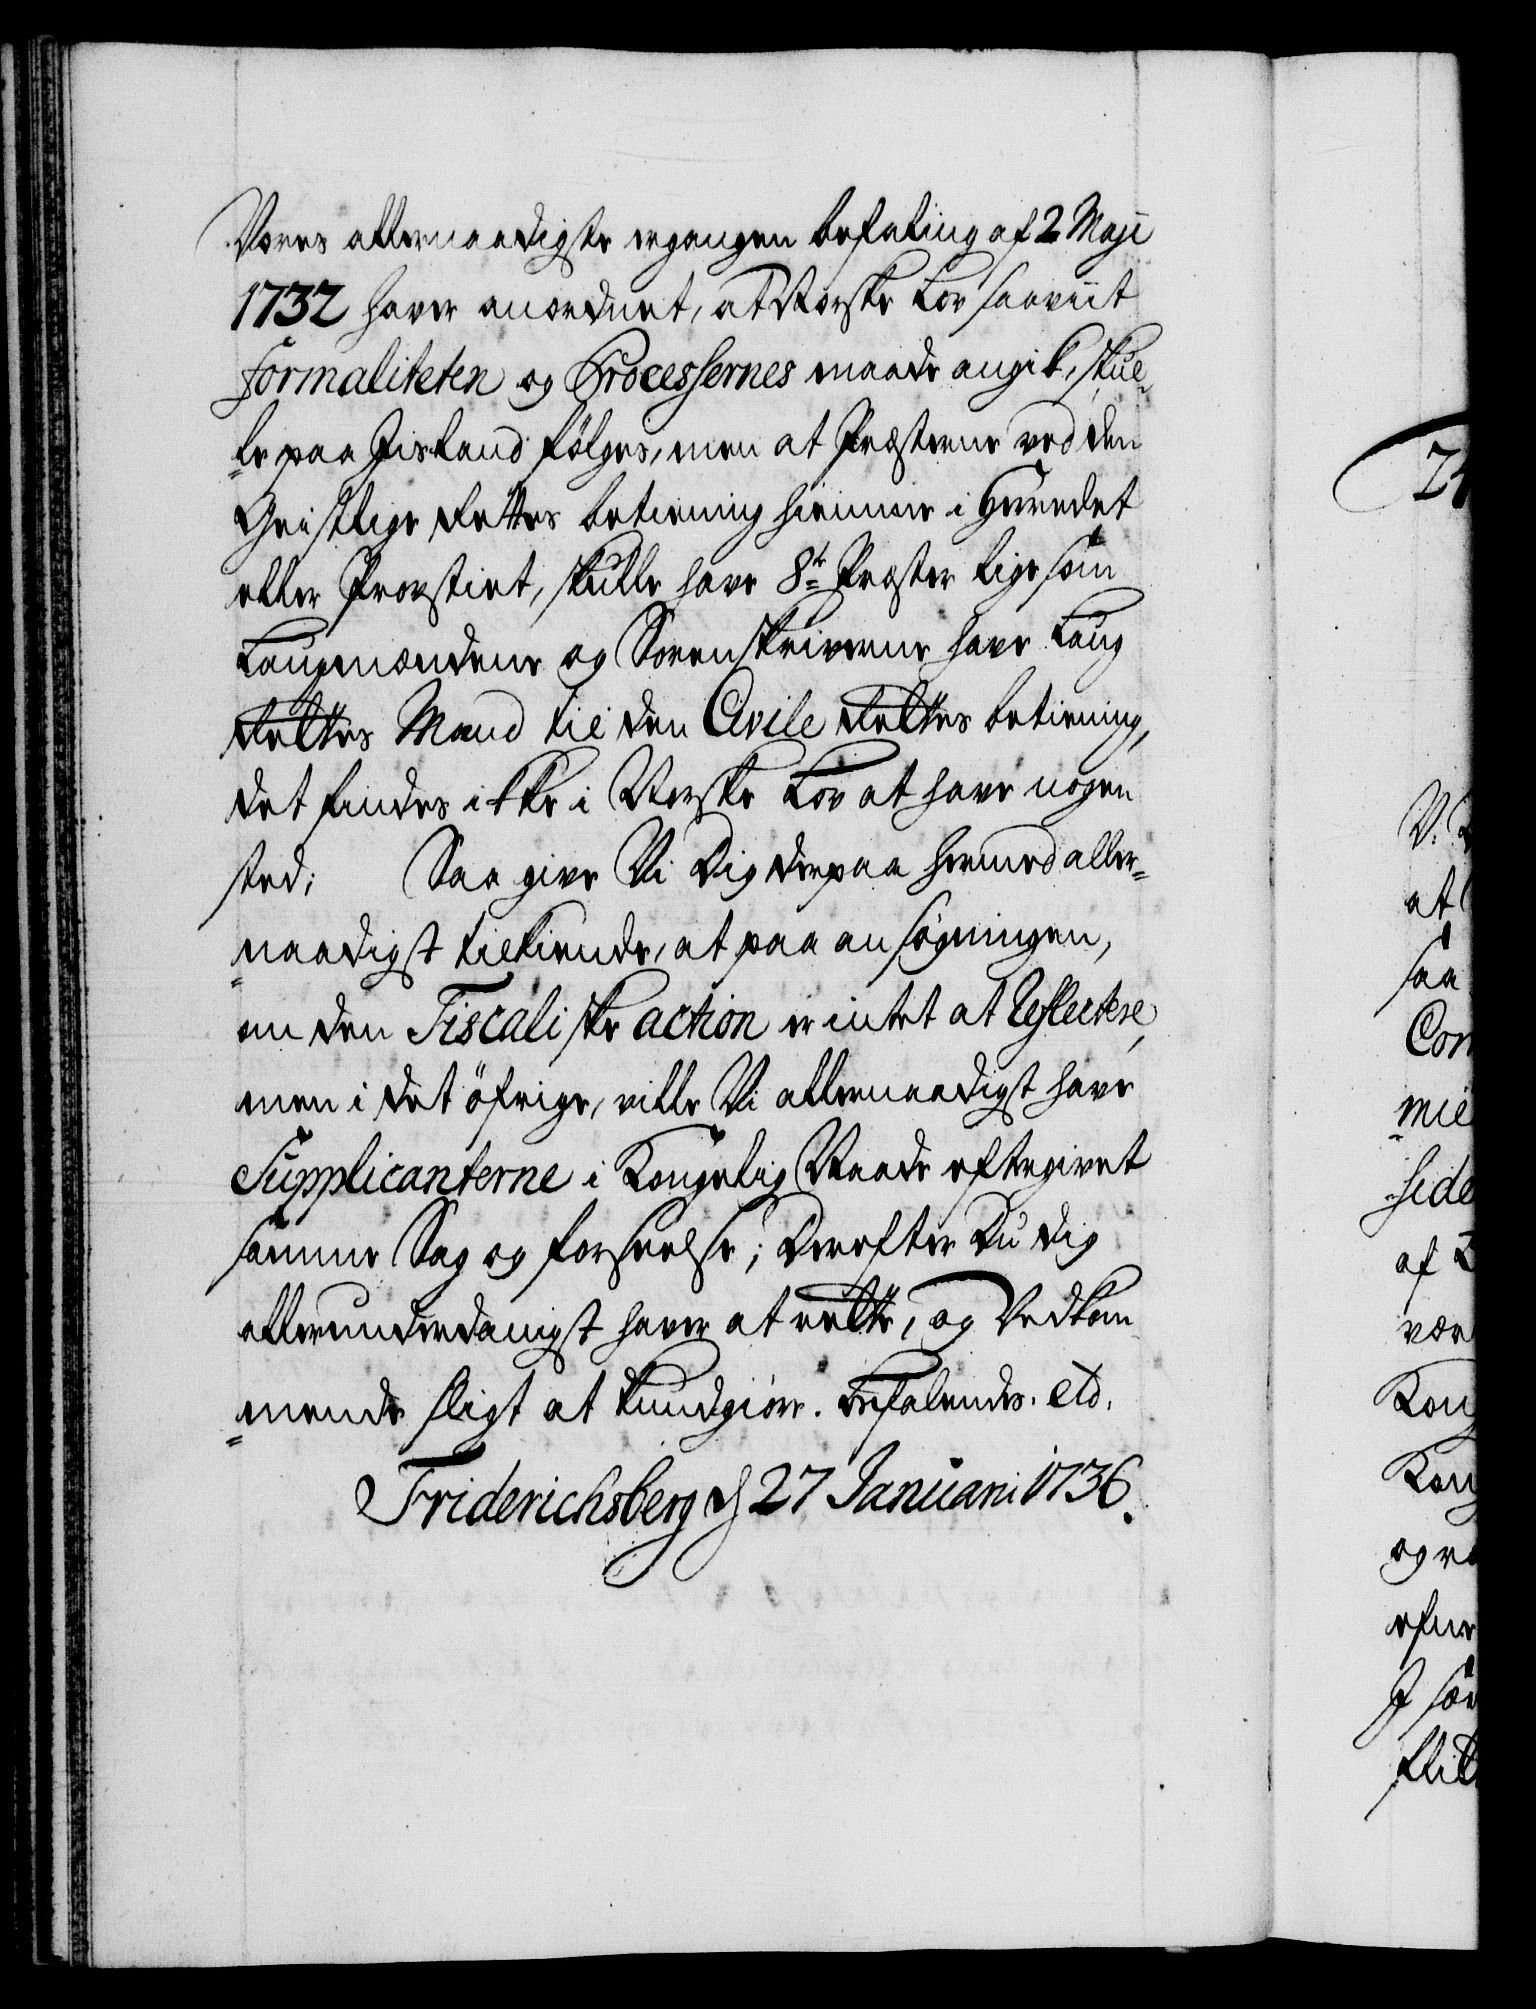 Vores allernaadigste ergangen befaling af 2 Maji
1732 haver anordnet, at Norske Lov saaviit
Formaliteten og Processernes maade angik, skul-
le paa Jisland følges, men at Præsterne ved den
Geistlige Rettes betiening hiemme i Herredet
eller Provstiet, skulle have 8te Præster ligesom
Laugmændene og Sorenskriverne have Laug
Rettes Mænd til den Civile Rettes betiening,
det findes ikke i Norske Lov at have nogen
sted; Saa give Vi Dig derpaa hermed aller-
naadigst tilkiende, at paa ansøgningen,
om den Fiscaliske action er intet at reflectere,
men i det öfrige, ville Vi allernaadigst have
Supplicanterne i Kongelig Naade eftergivet
samme Sag og forseelse; Derefter Du dig
allerunderdanigst haver at rette, og Vedkom
mende sligt at kundgiøre. Befalendes. etc.
Friderichsberg d 27 Januarii 1736.
24
V. L
at
saa
Com
mie
side
af
vær
Kong
Kong
og
efne
J
flit